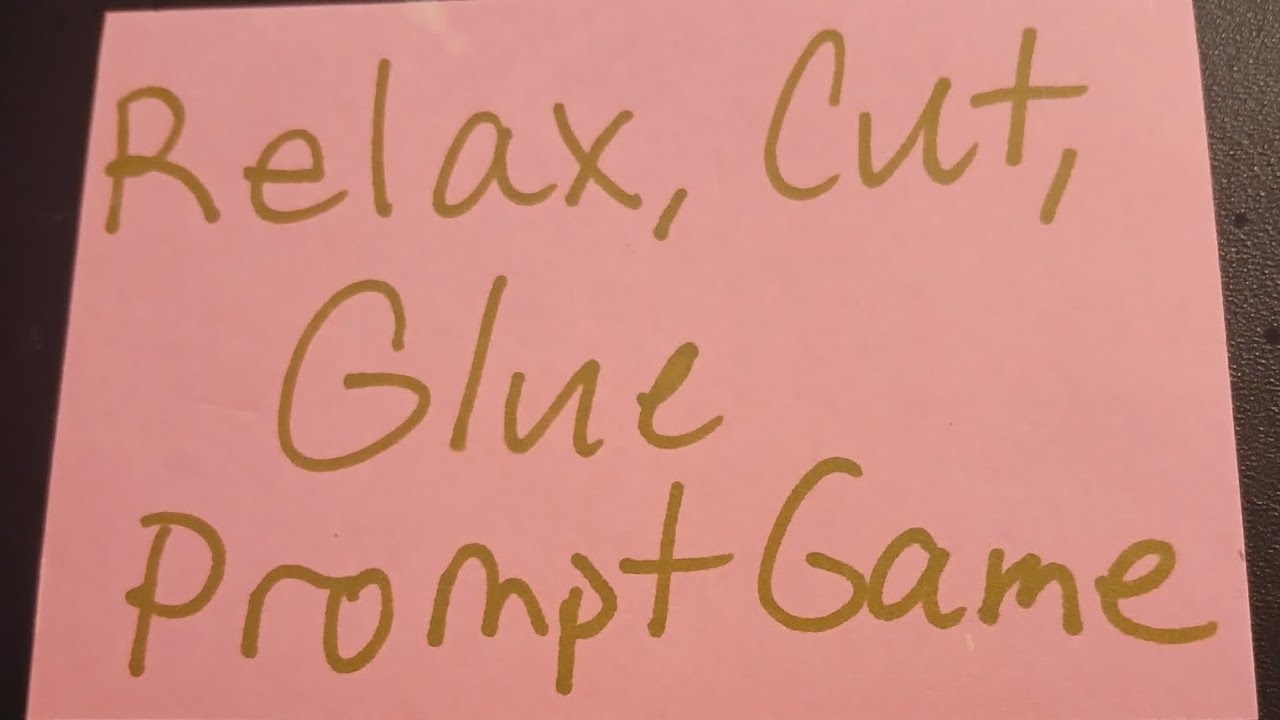 Relax, Cut,
Glue
Prompt Game